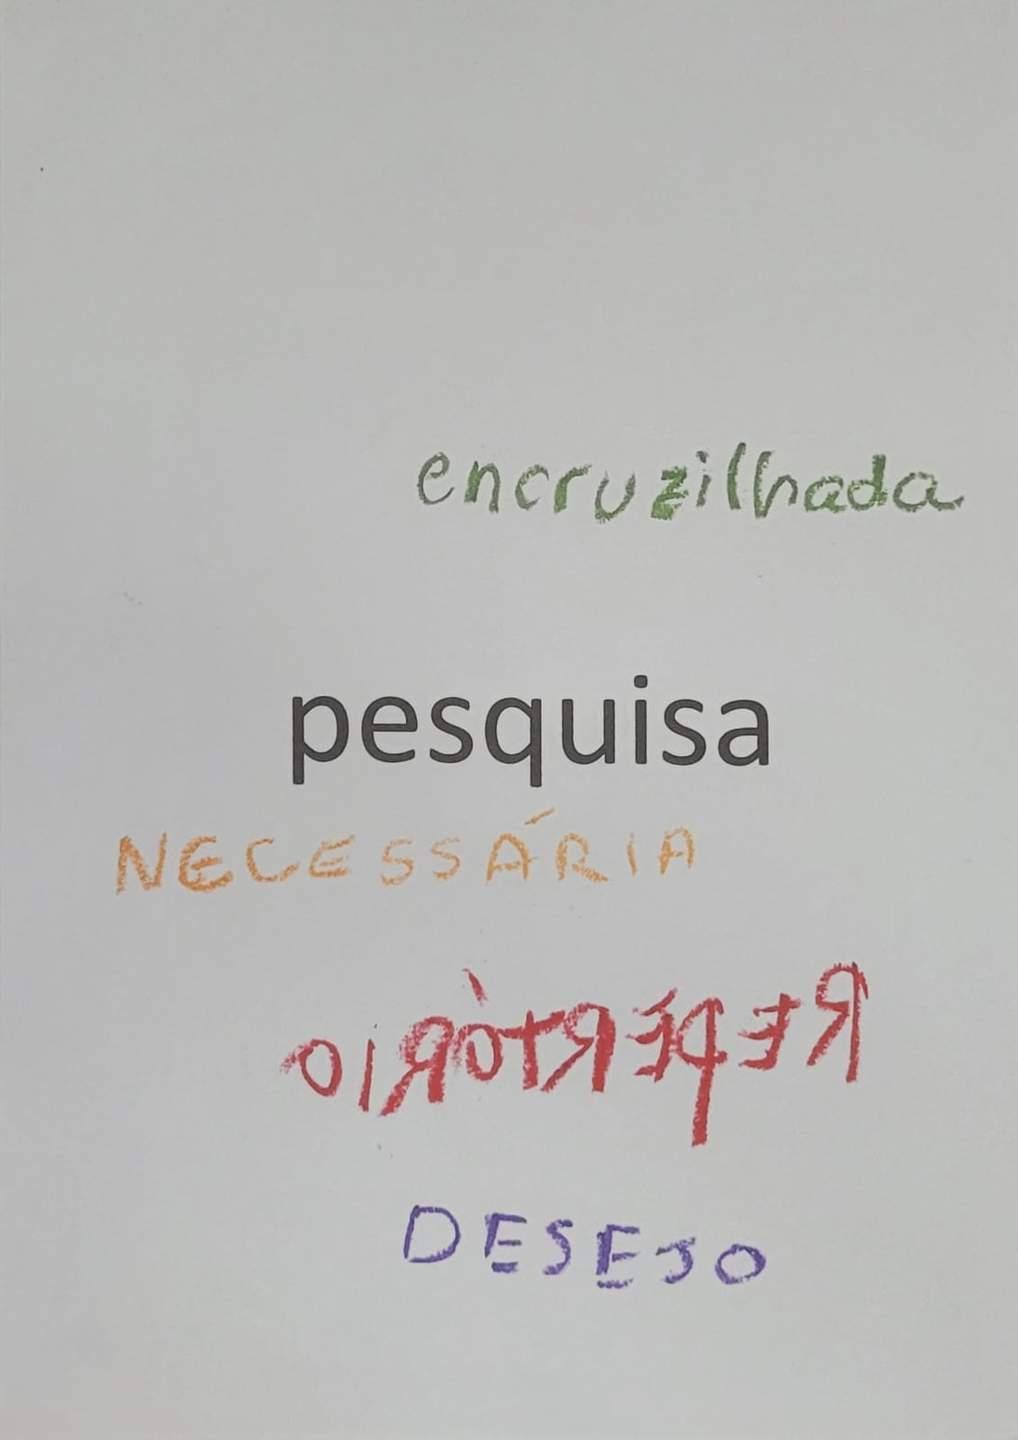 encruzilhada
pesquisa
NECESSÁRIA
REPERTÓRIO
DESEJO